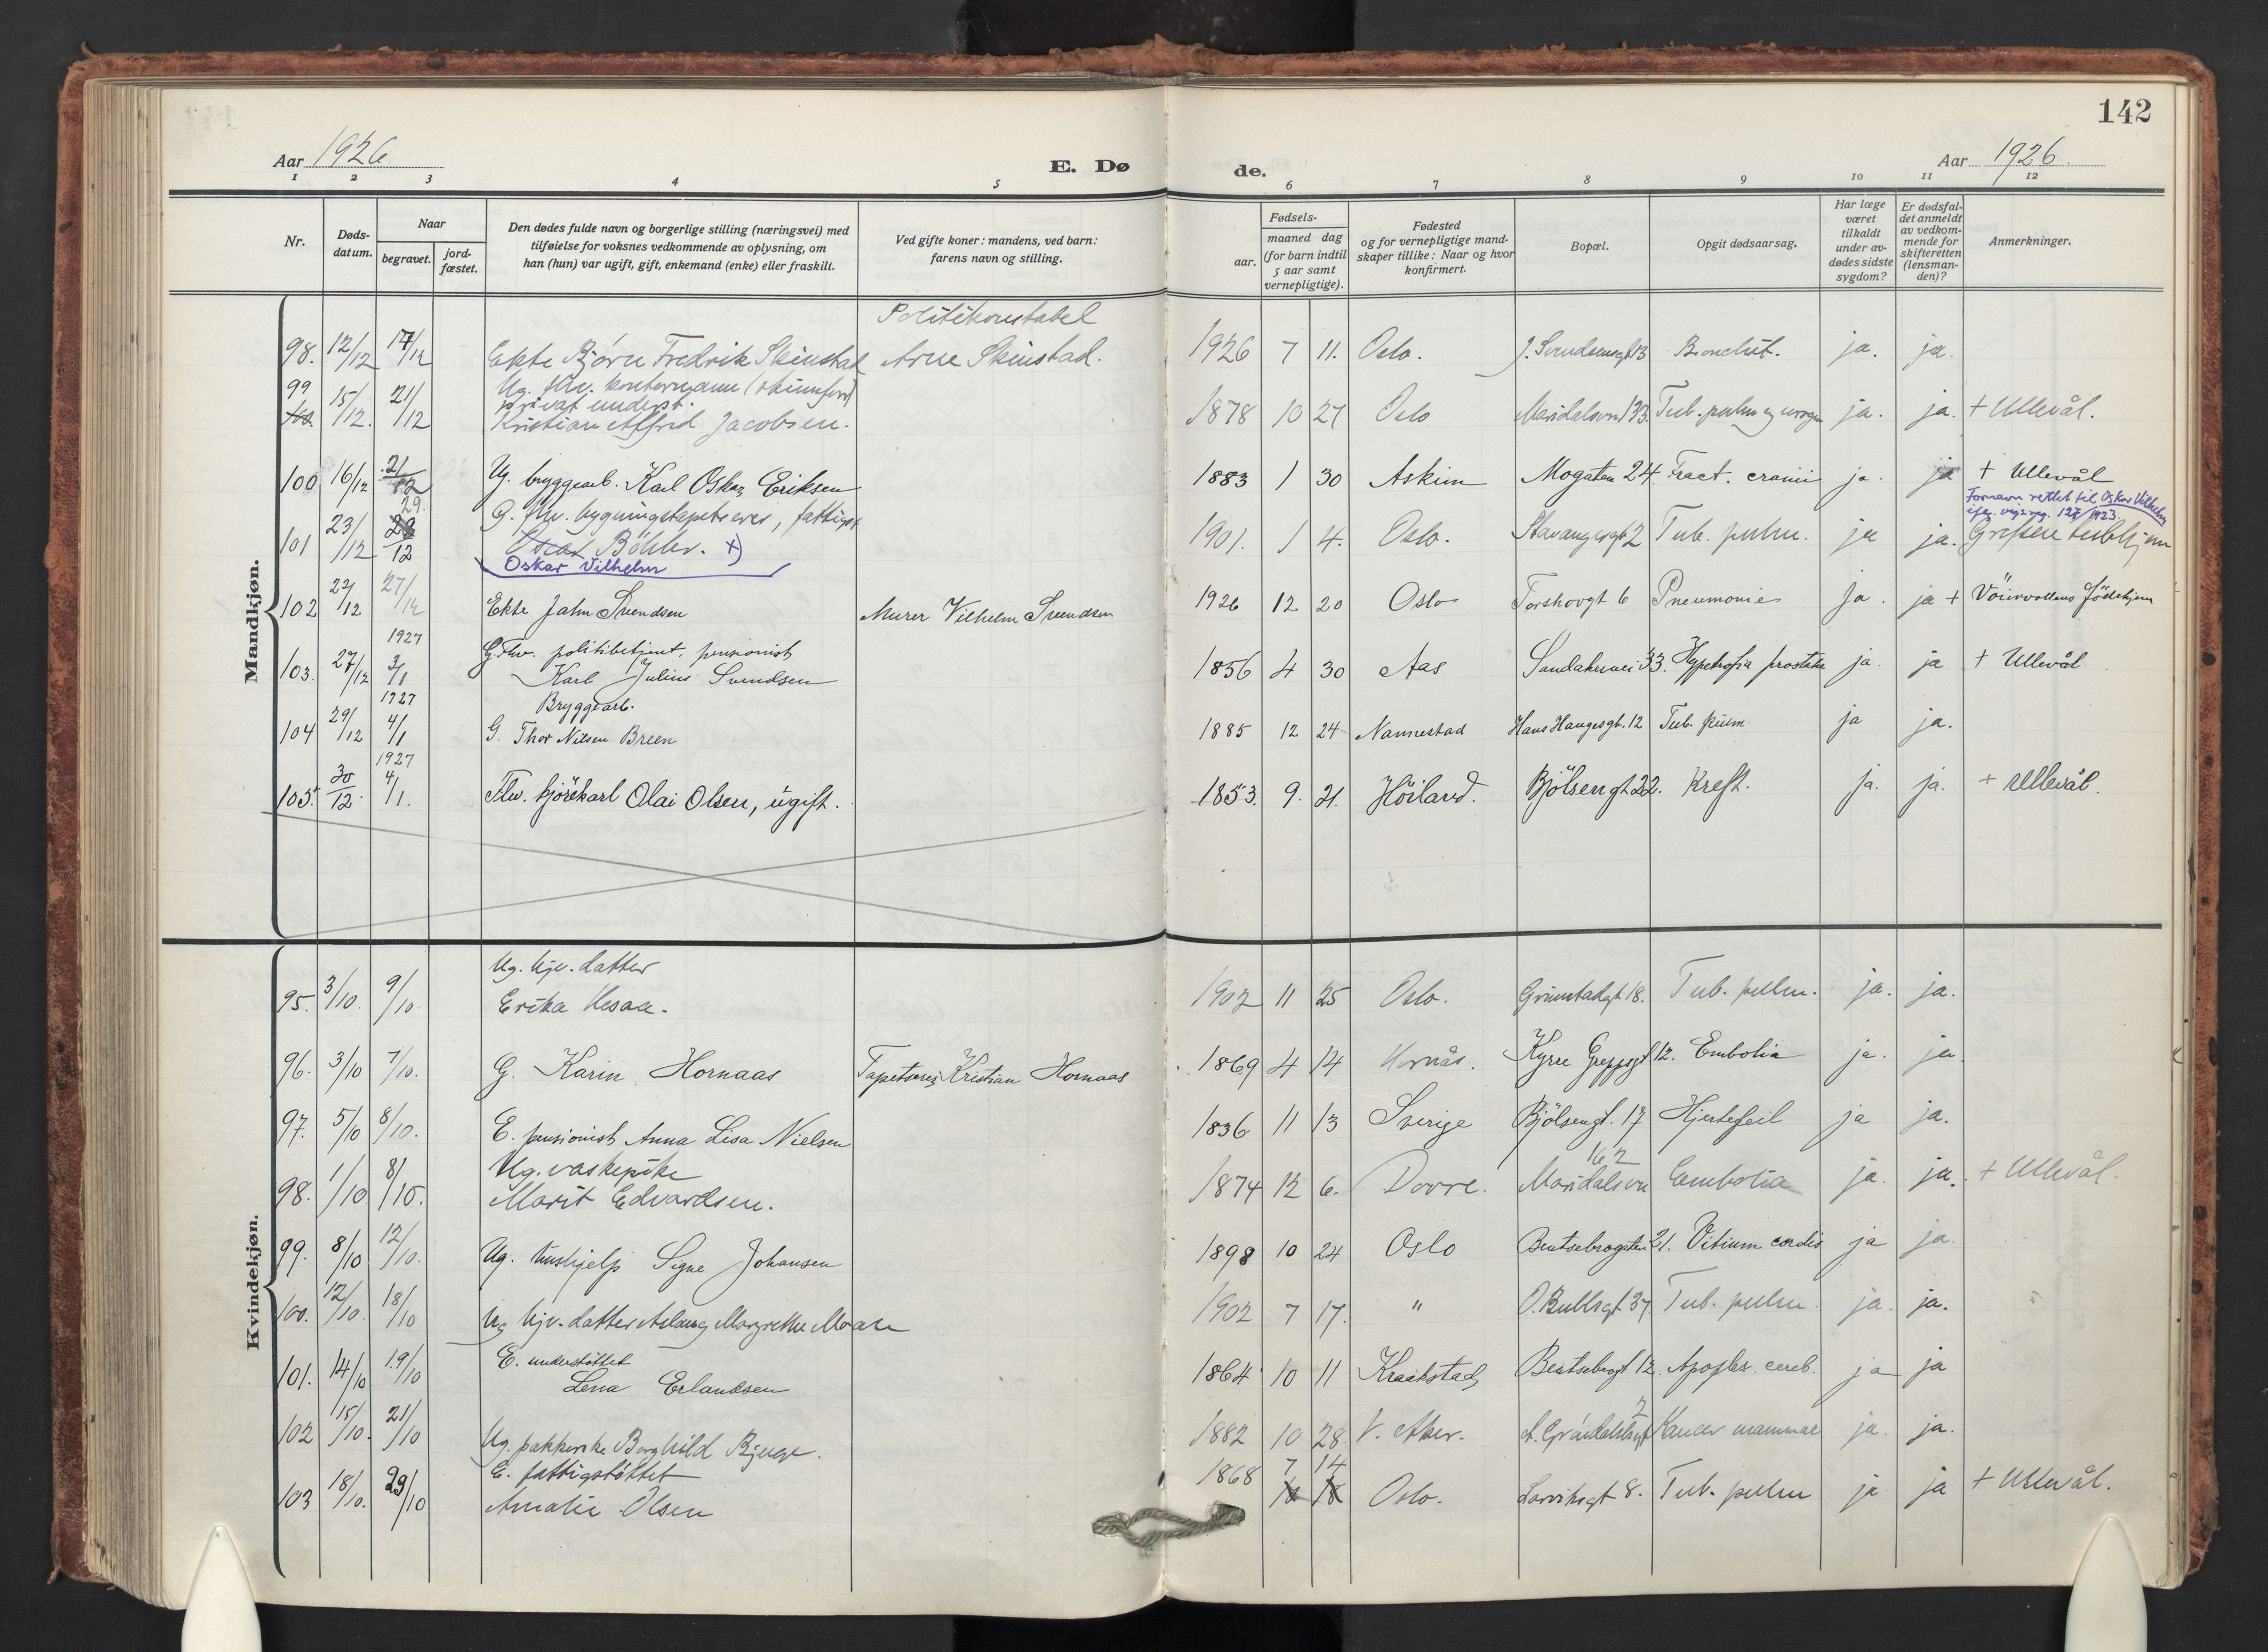 142
Aar 1926
E. Dø
de.
Aar 1926.
1 2 3 4 5 6 7 8 9 10 11 12
Nr.
Døds-
datum.
Naar
begravet.
jord-
fæstet.
Den dødes fulde navn og borgerlige stilling (næringsvei) med
tilføielse for voksnes vedkommende av oplysning, om
han (hun) var ugift, gift, enkemand (enke) eller fraskilt.
Ved gifte koner: mandens, ved barn:
farens navn og stilling.
Fødsels-
aar.
maaned dag
(for barn indtil
5 aar samt
vernepligtige).
Fødested
og for vernepligtige mand-
skaper tillike: Naar og hvor
konfirmert.
Bopæl.
Opgit dødsaarsag.
Har læge
været
tilkaldt
under av-
dødes sidste
sygdom?
Er dødsfal-
det anmeldt
av vedkom-
mende for
skifteretten
(lensman-
den)?
Anmerkninger.
Mandkjøn.
Politikonstabel
98. 12/12 17/12 Ekte Bjørn Fredrik Skinstad Arne Skinstad. 1926 7 11. Oslo. J. Svendsensgt 13 Bronchit. ja. ja.
Ug. fhv. kontormann
privat underst.
99 15/12. 21/12 Kristian Alfred Jacobsen. 1878 10 27 Oslo Maridalsvn 133. Tub. pulm og urogen ja. ja. + Ullevål.
100 16/12 21/12 Ug. bryggearb. Karl Oskar Eriksen 1883 1 30 Askim Mogaten 24. Fract. cranii ja. ja + Ullevål
Fornavn rettet til Oskar Vilhelm
29. G. fhv. bygningstapetserer, fattigst
101 23/12 28/12 Oscar Böhler. x) 1901. 1 4. Oslo. Stavangergt 2 Tub. pulm. ja ja. Grefsen tubhjem
Oskar Vilhelm
102 22/12 27/12 Ekte Jahn Svendsen Murer Vilhelm Svendsen 1926 12 20 Oslo Torshovgt 6 Pneumonie ja. ja + Vöienvollens Födehjem
1927
G. Fhv. politibetjent, pensionist
103. 27/12 3/1 Karl Julius Svendsen 1856 4 30 Aas Sandakervei 33. Hypetrofia prostata ja. ja + Ullevål
1927
Bryggearb.
104 29/12 4/1 G. Thor Nilsen Breen 1885 12 24 Nannestad Hans Haugesgt. 12 Tub. pulm ja ja.
1927
105. 30/12. 4/1. Fhv. kjörekarl Olai Olsen, ugift. 1853. 9. 21. Höiland. Bjölsengt 22. Kreft. ja. ja. + Ullevål.
Kvindekjøn.
Ug. hjv. datter
95. 3/10. 9/10. Erika Hesaa. 1902 11 25 Oslo. Grimstadgt 18. Tub. pulm. ja. ja.
96. 3/10 7/10. G. Karin Hornaas Tapetserer Kristian Hornaas 1869 4 14 Hornås. Kyrre Greppsgt 12. Embolia ja. ja.
97. 5/10 8/10. E. pensionist Anna Lisa Nielsen 1836 11 13 Sverige Bjölsengt. 17 Hjertefeil ja ja.
Ug. vaskepike
162
98. 1/10 8/10. Marit Edvardsen. 1874 12 6. Dovre. Maridalsvn Embolia ja. ja. + Ullevål.
99. 8/10 12/10. Ug. hushjelp Signe Johansen 1898 10 24 Oslo Bentsebrogaten 21. Vitium cordis ja ja.
100. 12/10. 18/10 Ug hjv. datter Aslaug Margrethe Moan 1902 7 17. " O. Bullsgt 37. Tub. pulm. ja. ja.
E. understöttet
101. 14/10 19/10 Lena Erlandsen 1864 10 11 Kraakstad Bentsebrogt 12. Apoplex. cereb. ja ja
2
102 15/10. 21/10 Ug. pakkerske Borghild Bjerge. 1882 10 28. V. Aker. Kancer mammae ja. ja.
E. fattigstöttet
1868 7 14
103 18/10. 29/10 Amalie Olsen 18 18 Oslo. Larviksgt 8. Tub. pulm ja ja + Ullevål.